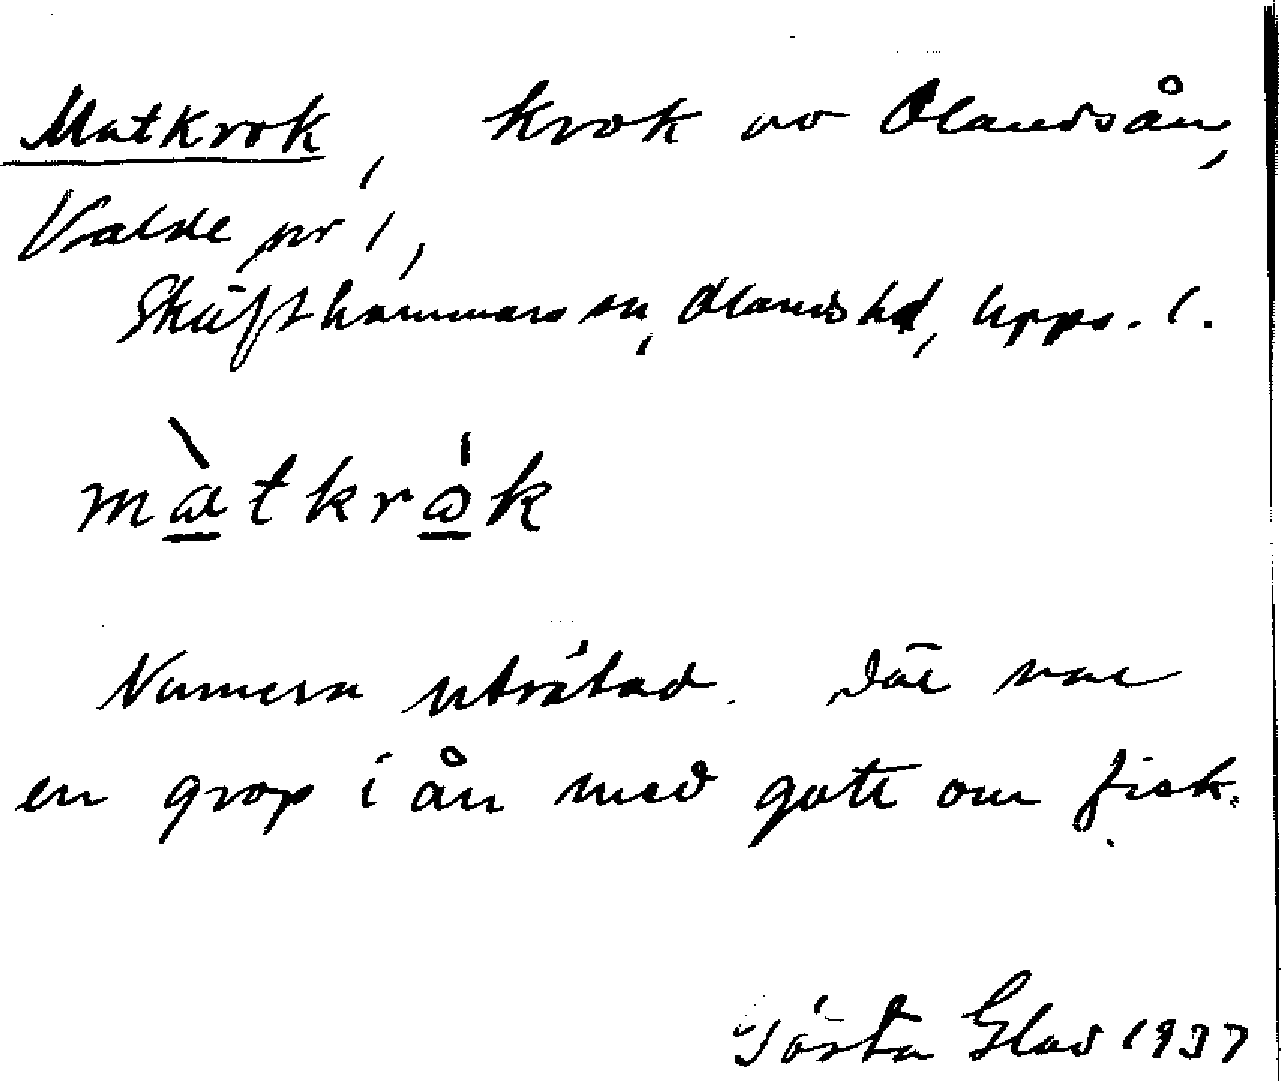 Matkrok, krok av Olandsån,
Valde nr 1,
Skäfthammars sn, Olands hd, Upps. l.
màtkrök
Numera uträtad. Där var
en grop i ån med gott om fisk.
Gösta Glad 1937